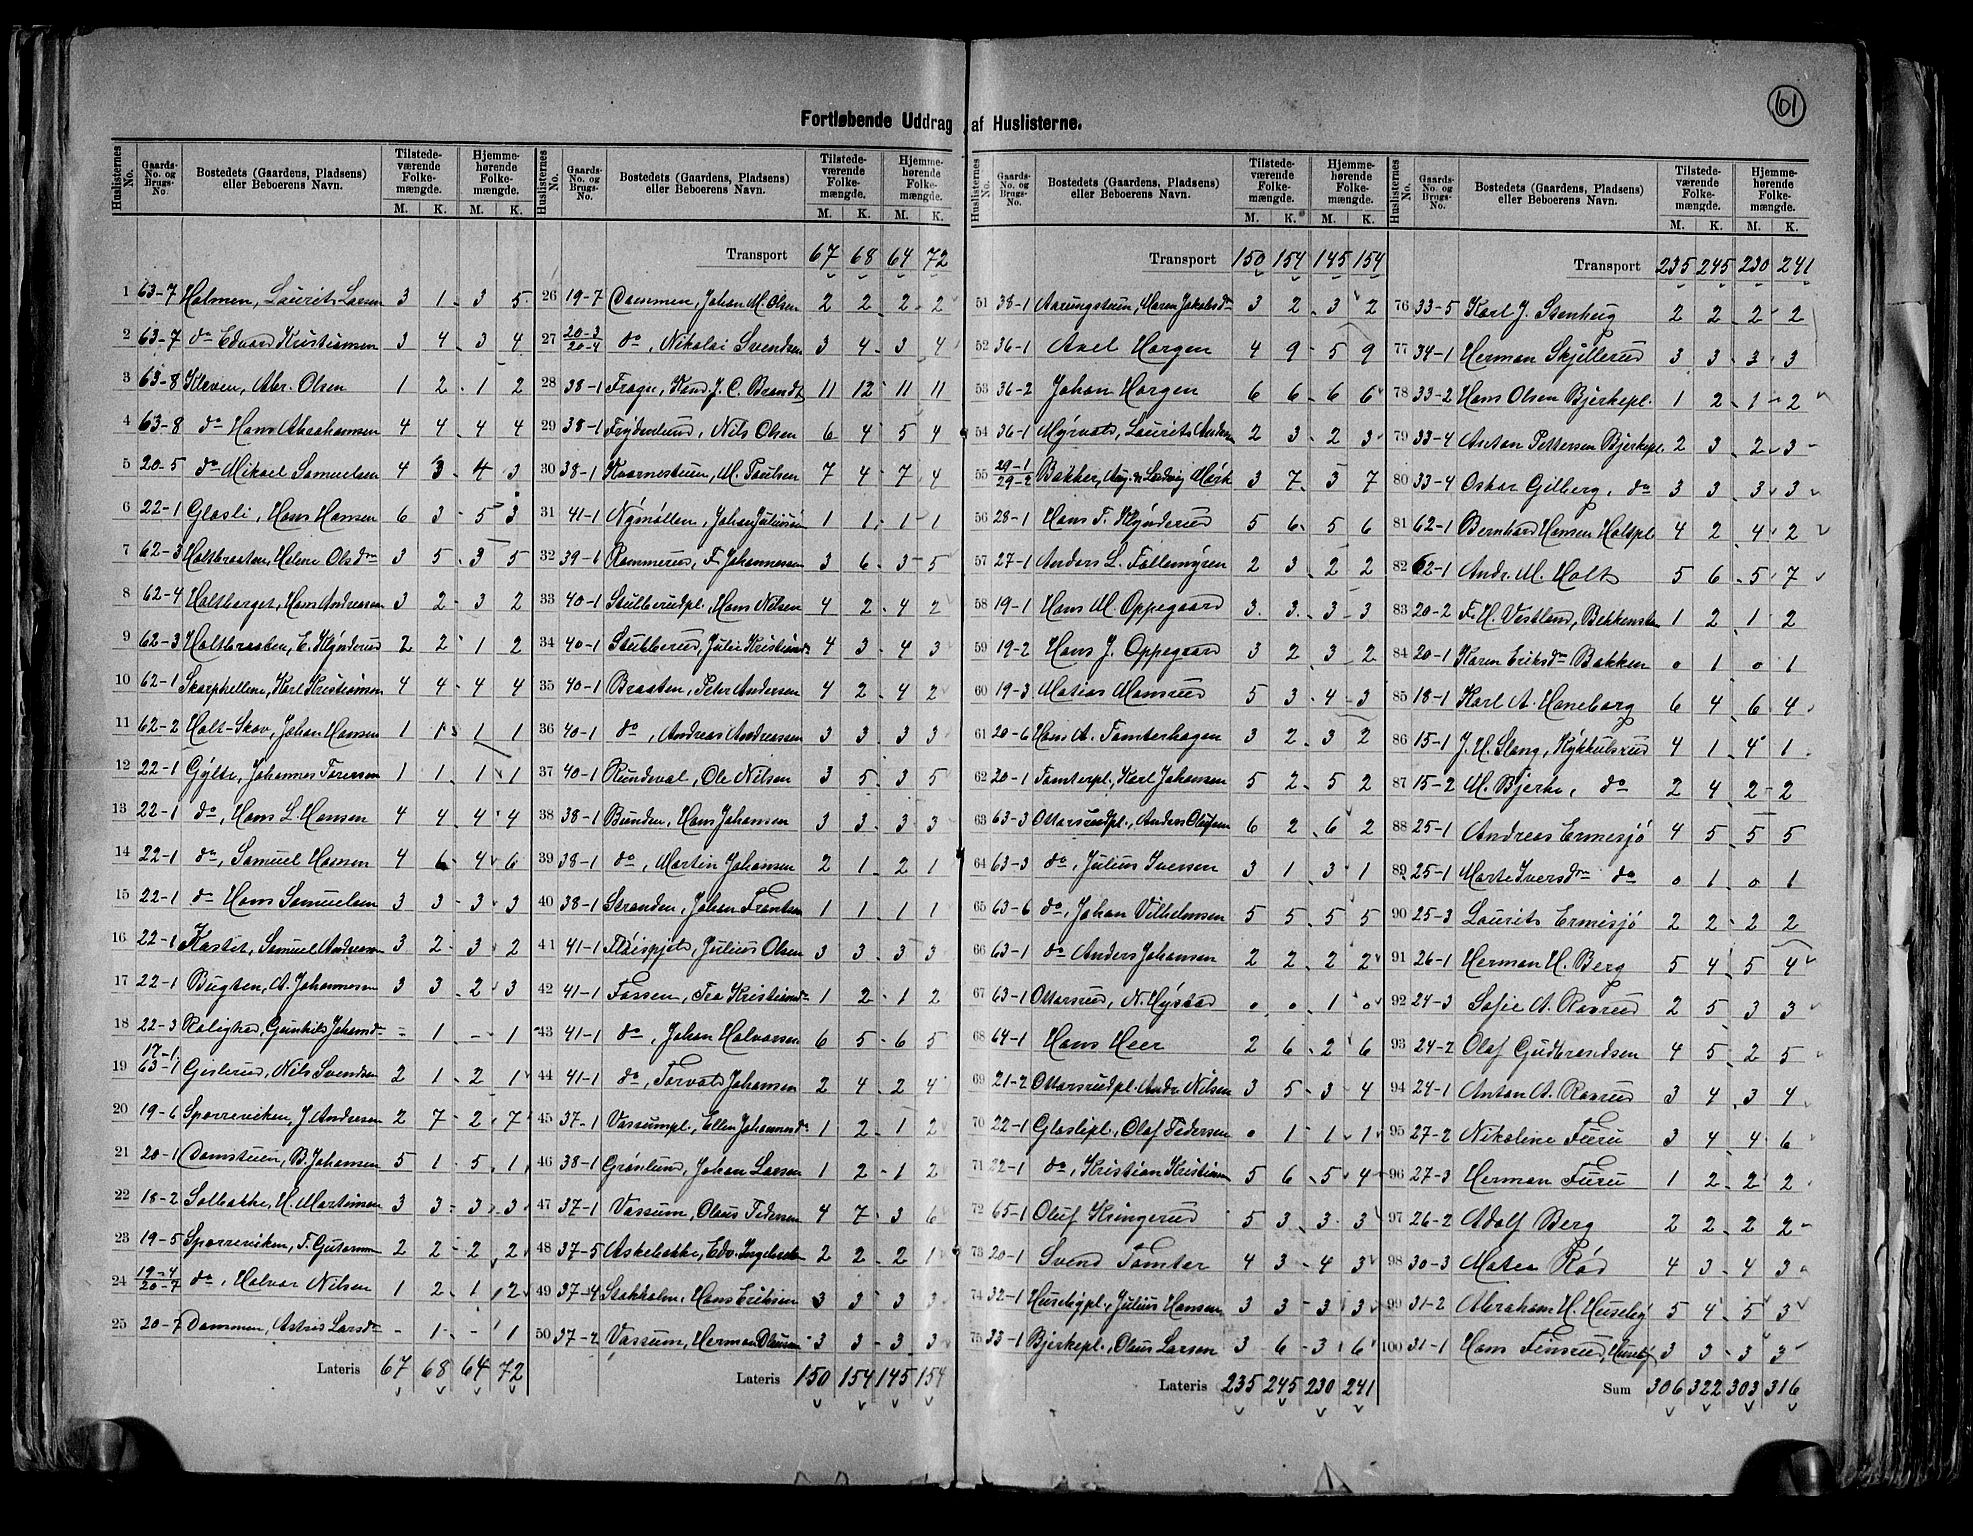 61
Fortløbende Uddrag af Huslisterne.
Huslisternes No. | Gaards-No. og Brugs-No. | Bostedets (Gaardens, Pladsens) eller Beboerens Navn. | Tilstedeværende Folkemængde. M. K. | Hjemmehørende Folkemængde. M. K.
1 63-7 Holmen, Laurits Larsen 3 1 3 5
2 63-7 do Edvard Kristiansen 3 4 3 4
3 63-8 Kleven, Abr. Olsen 1 2 1 2
4 63-8 do Hans Abrahamsen 4 4 4 4
5 20-5 do Mikael Samuelsen 4 3 4 3
6 22-1 Glasli, Hans Hansen 6 3 5 3
7 62-3 Holtbraaten, Helene Olsdr 3 5 3 5
8 62-4 Holtberget, Hans Andreasen 3 2 3 2
9 62-3 Holtbraaten, E. Klynderud 2 2 1 2
10 62-1 Skarphellene, Karl Kristiansen 4 4 4 4
11 62-2 Holt-Skov, Johan Hansen 1 1 1 1
12 22-1 Gylte, Johannes Torersen 1 1 1 1
13 22-1 do, Hans L Hansen 4 4 4 4
14 22-1 do, Samuel Hansen 4 6 4 6
15 22-1 do Hans Samuelsen 3 3 3 3
16 22-1 Kastet, Samuel Andersen 3 2 3 2
17 22-1 Bugten, A. Johannesen 3 3 2 3
18 22-3 Rolighed, Gunhild Johansdr - 1 - 1
19 17-1 63-1 Gislerud, Nils Svendsen 2 1 2 1
20 19-6 Sporreviken, J. Andersen 2 7 2 7
21 20-1 Damstuen, B. Johansen 5 1 5 1
22 18-2 Solbakke, H. Martinsen 3 3 3 3
23 19-5 Sporreviken, T. 2 2 2 2
24 19-4 20-7 do, Halvor Nilsen 1 2 1 2
25 20-7 Dammen, Astrid Larsdr - 1 - 1
Lateris 67 68 64 72
Huslisternes No. | Gaards-No. og Brugs-No. | Bostedets (Gaardens, Pladsens) eller Beboerens Navn. | Tilstedeværende Folkemængde. M. K. | Hjemmehørende Folkemængde. M. K.
Transport 67 68 64 72
26 19-7 Dammen, Johan M. Olsen 2 2 2 2
27 20-3 20-4 do, Nikolai Svendsen 3 4 3 4
28 38-1 Frogn, Kand. J. C. Brandt 11 12 11 11
29 38-1 Frydenlund, Nils Olsen 6 4 5 4
30 38-1 Kvarnestuen, M. Paulsen 7 4 7 4
31 41-1 Nymøllen, Johan Juliussen 1 1 1 1
32 39-1 Rammerud, F. Johannessen 3 6 3 5
33 40-1 Stubberudpl., Hans Nilsen 4 2 4 2
34 40-1 Stubberud, Julie Kristiansdr 4 3 4 3
35 40-1 Braaten, Peter Andersen 4 2 4 2
36 40-1 do, Andreas Andreassen 3 3 3 3
37 40-1 Rundeval, Ole Nilsen 3 5 3 5
38 38-1 Bunden, Hans Johansen 3 3 3 3
39 38-1 do, Martin Johansen 2 1 2 1
40 38-1 Stranden, Johan Frantsen 1 1 1 1
41 41-1 Flaispjeld, Julius Olsen 3 3 3 3
42 41-1 Fossen, Tea Kristiansdr 1 2 1 2
43 41-1 do, Johan Halvorsen 6 5 6 5
44 41-1 do, Torvald Johansen 2 4 2 4
45 37-1 Vassumpl., Ellen Johannesdr 1 2 1 2
46 38-1 Grønlund, Johan Larsen 1 2 1 2
47 37-1 Vassum, Olaus Pedersen 4 7 3 6
48 37-5 Askebakke, Edv. Ingebretsen 2 2 2 1
49 37-4 Stokholm, Hans Eriksen 3 3 3 3
50 37-2 Vassum, Herman 3 3 3 3
Lateris 150 154 145 154
Huslisternes No. | Gaards-No. og Brugs-No. | Bostedets (Gaardens, Pladsens) eller Beboerens Navn. | Tilstedeværende Folkemængde. M. K. | Hjemmehørende Folkemængde. M. K.
Transport 150 154 145 154
51 38-1 Aarungstuen, Maren Jakobsdr 3 2 3 2
52 36-1 Axel Horgen 4 9 5 9
53 36-2 Johan Horgen 6 6 6 6
54 36-1 Myrvold, Laurits Andersen 2 3 2 3
55 29-1 29-2 Bakker, Aug. & Ludvig Mørk 3 7 3 7
56 28-1 Hans T. Klynderud 5 6 5 6
57 27-1 Anders L. Follemyren 2 3 2 2
58 19-1 Hans M. Oppegaard 3 3 3 3
59 19-2 Hans J. Oppegaard 3 2 3 2
60 19-3 Matias Mansrud 5 3 4 3
61 20-6 Hans A. Tomterhagen 3 2 3 2
62 20-1 Tomterpl., Karl Johansen 5 2 5 2
63 63-3 Ottarsrudpl., Anders Olufsen 6 2 6 2
64 63-3 do, Julius Iversen 3 1 3 1
65 63-6 do, Johan Vilhelmsen 5 5 5 5
66 63-1 do Anders Johansen 2 2 2 2
67 63-1 Ottarsrud, N. Hystad 0 0 1 0
68 64-1 Hans Heer 2 6 2 6
69 21-2 Ottarsrudpl. Andr. Nilsen 3 5 3 4
70 22-1 Glaslipl., Olaf Pedersen 0 1 1 1
71 22-1 do, Kristian Kristiansen 5 6 5 4
72 65-1 Oluf Kringerud 5 3 3 3
73 20-1 Svend Tomter 4 3 4 3
74 32-1 Husebypl., Julius Hansen 3 3 3 3
75 33-1 Bjerkepl., Olaus Larsen 3 6 3 6
Lateris 235 245 230 241
Huslisternes No. | Gaards-No. og Brugs-No. | Bostedets (Gaardens, Pladsens) eller Beboerens Navn. | Tilstedeværende Folkemængde. M. K. | Hjemmehørende Folkemængde. M. K.
Transport 235 245 230 241
76 33-5 Karl J. Stenberg 2 2 2 2
77 34-1 Herman Skjellerud 3 3 3 3
78 33-2 Hans Olsen Bjerkepl. 1 2 1 2
79 33-4 Anton Pettersen Bjerkepl. 2 3 2 3
80 33-4 Oskar Gilberg, do 3 3 3 3
81 62-1 Bernhard Hansen Holtpl. 4 2 4 2
82 62-1 Andr. M. Holt 5 6 5 7
83 20-2 F. H. Vestland, Bekkensten 1 2 1 2
84 20-1 Karen Eriksdr Bakken 0 1 0 1
85 18-1 Karl A. Haneborg 6 4 6 4
86 15-1 J. H. Slang, Kykkelsrud 4 1 4 1
87 15-2 M. Bjerke, do 2 4 2 2
88 25-1 Andreas Ermesjø 4 5 5 5
89 25-1 Marte Iversdr do 0 1 0 1
90 25-3 Laurits Ermesjø 2 2 2 2
91 26-1 Herman H. Berg 5 4 5 4
92 24-3 Sofie A. Ravrud 2 5 3 3
93 24-2 Olaf Gudbrandsen 4 5 2 5
94 24-1 Anton A. Ravrud 3 4 3 4
95 27-2 Nikoline Furu 3 4 4 6
96 27-3 Herman Furu 1 2 2 2
97 26-2 Adolf Berg 2 2 2 2
98 30-3 Matea Rød 4 3 4 3
99 31-2 Abraham H. Huseby 5 4 5 3
100 31-1 Hans Finsrud, Huseby 3 3 3 3
Sum 306 322 303 316